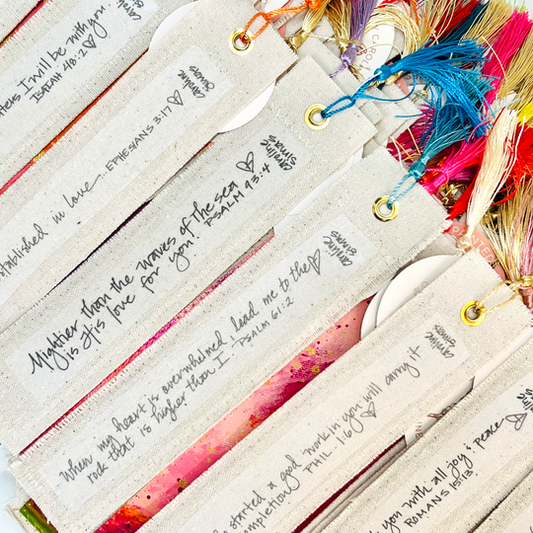 I will be with you.
ISAIAH 43:2
caroline
simons
established in love... EPHESIANS 3:17
caroline
simons
Mightier than the waves of the sea
is His love for you. PSALM 93:4
caroline
simons
When my heart is overwhelmed, lead me to the
rock that is higher than I. PSALM 61:2
caroline
simons
started a good work in you will carry it
completion PHIL 1:6
caroline
simons
you with all joy & peace
ROMANS 15:13